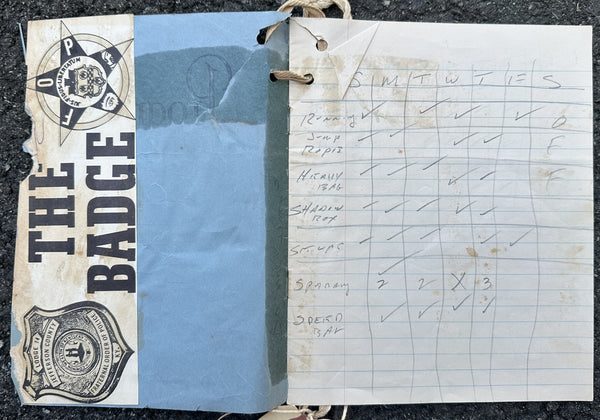 F O P
JUS FIDUS LIBERTATUM
THE
BADGE
LODGE 14
JEFFERSON COUNTY
FRATERNAL ORDER OF POLICE
KY.
S M T W T F S
Running ✓ ✓ ✓ ✓ ✓ O
Jump ✓ ✓ ✓ ✓ F
Rope
Heavy ✓ ✓ ✓ ✓ ✓ F
Bag
Shadow ✓ ✓ ✓ ✓ ✓
Box
Sit ups ✓ ✓ ✓ ✓ ✓ ✓
Sparring 2 2 X 3
Speed ✓ ✓ ✓ ✓
Bag